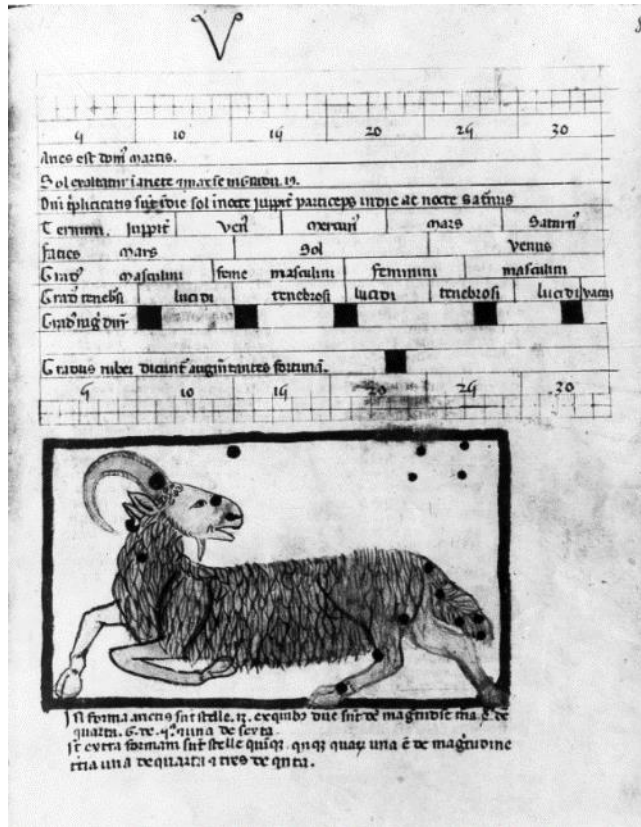 V
9 10 19 20 29 30
Aries est dom' martis.
Sol exaltatur i ariete
Dn̄i sūt i die sol i nocte juppit' particeps in die ac nocte Saturnus
Termini. Juppit' ven' mercuri' mars Saturn'
facies mars Sol venus
Grad' masculini feme masculini feminini masculini
Grad' tenebsi lucidi tenebrosi lucidi tenebrosi lucidi vacui
Gradus rubei dicunt' augmentantes fortunā.
9 10 19 20 29 30
In forma arietis sūt stelle. 13. ex quibz due sūt de magtudie t'tia
quarta. 6. de una de sexta.
It' extra formam sūt stelle quinqz. una ē de magtudine
t'tia una de quarta tres de qnta.